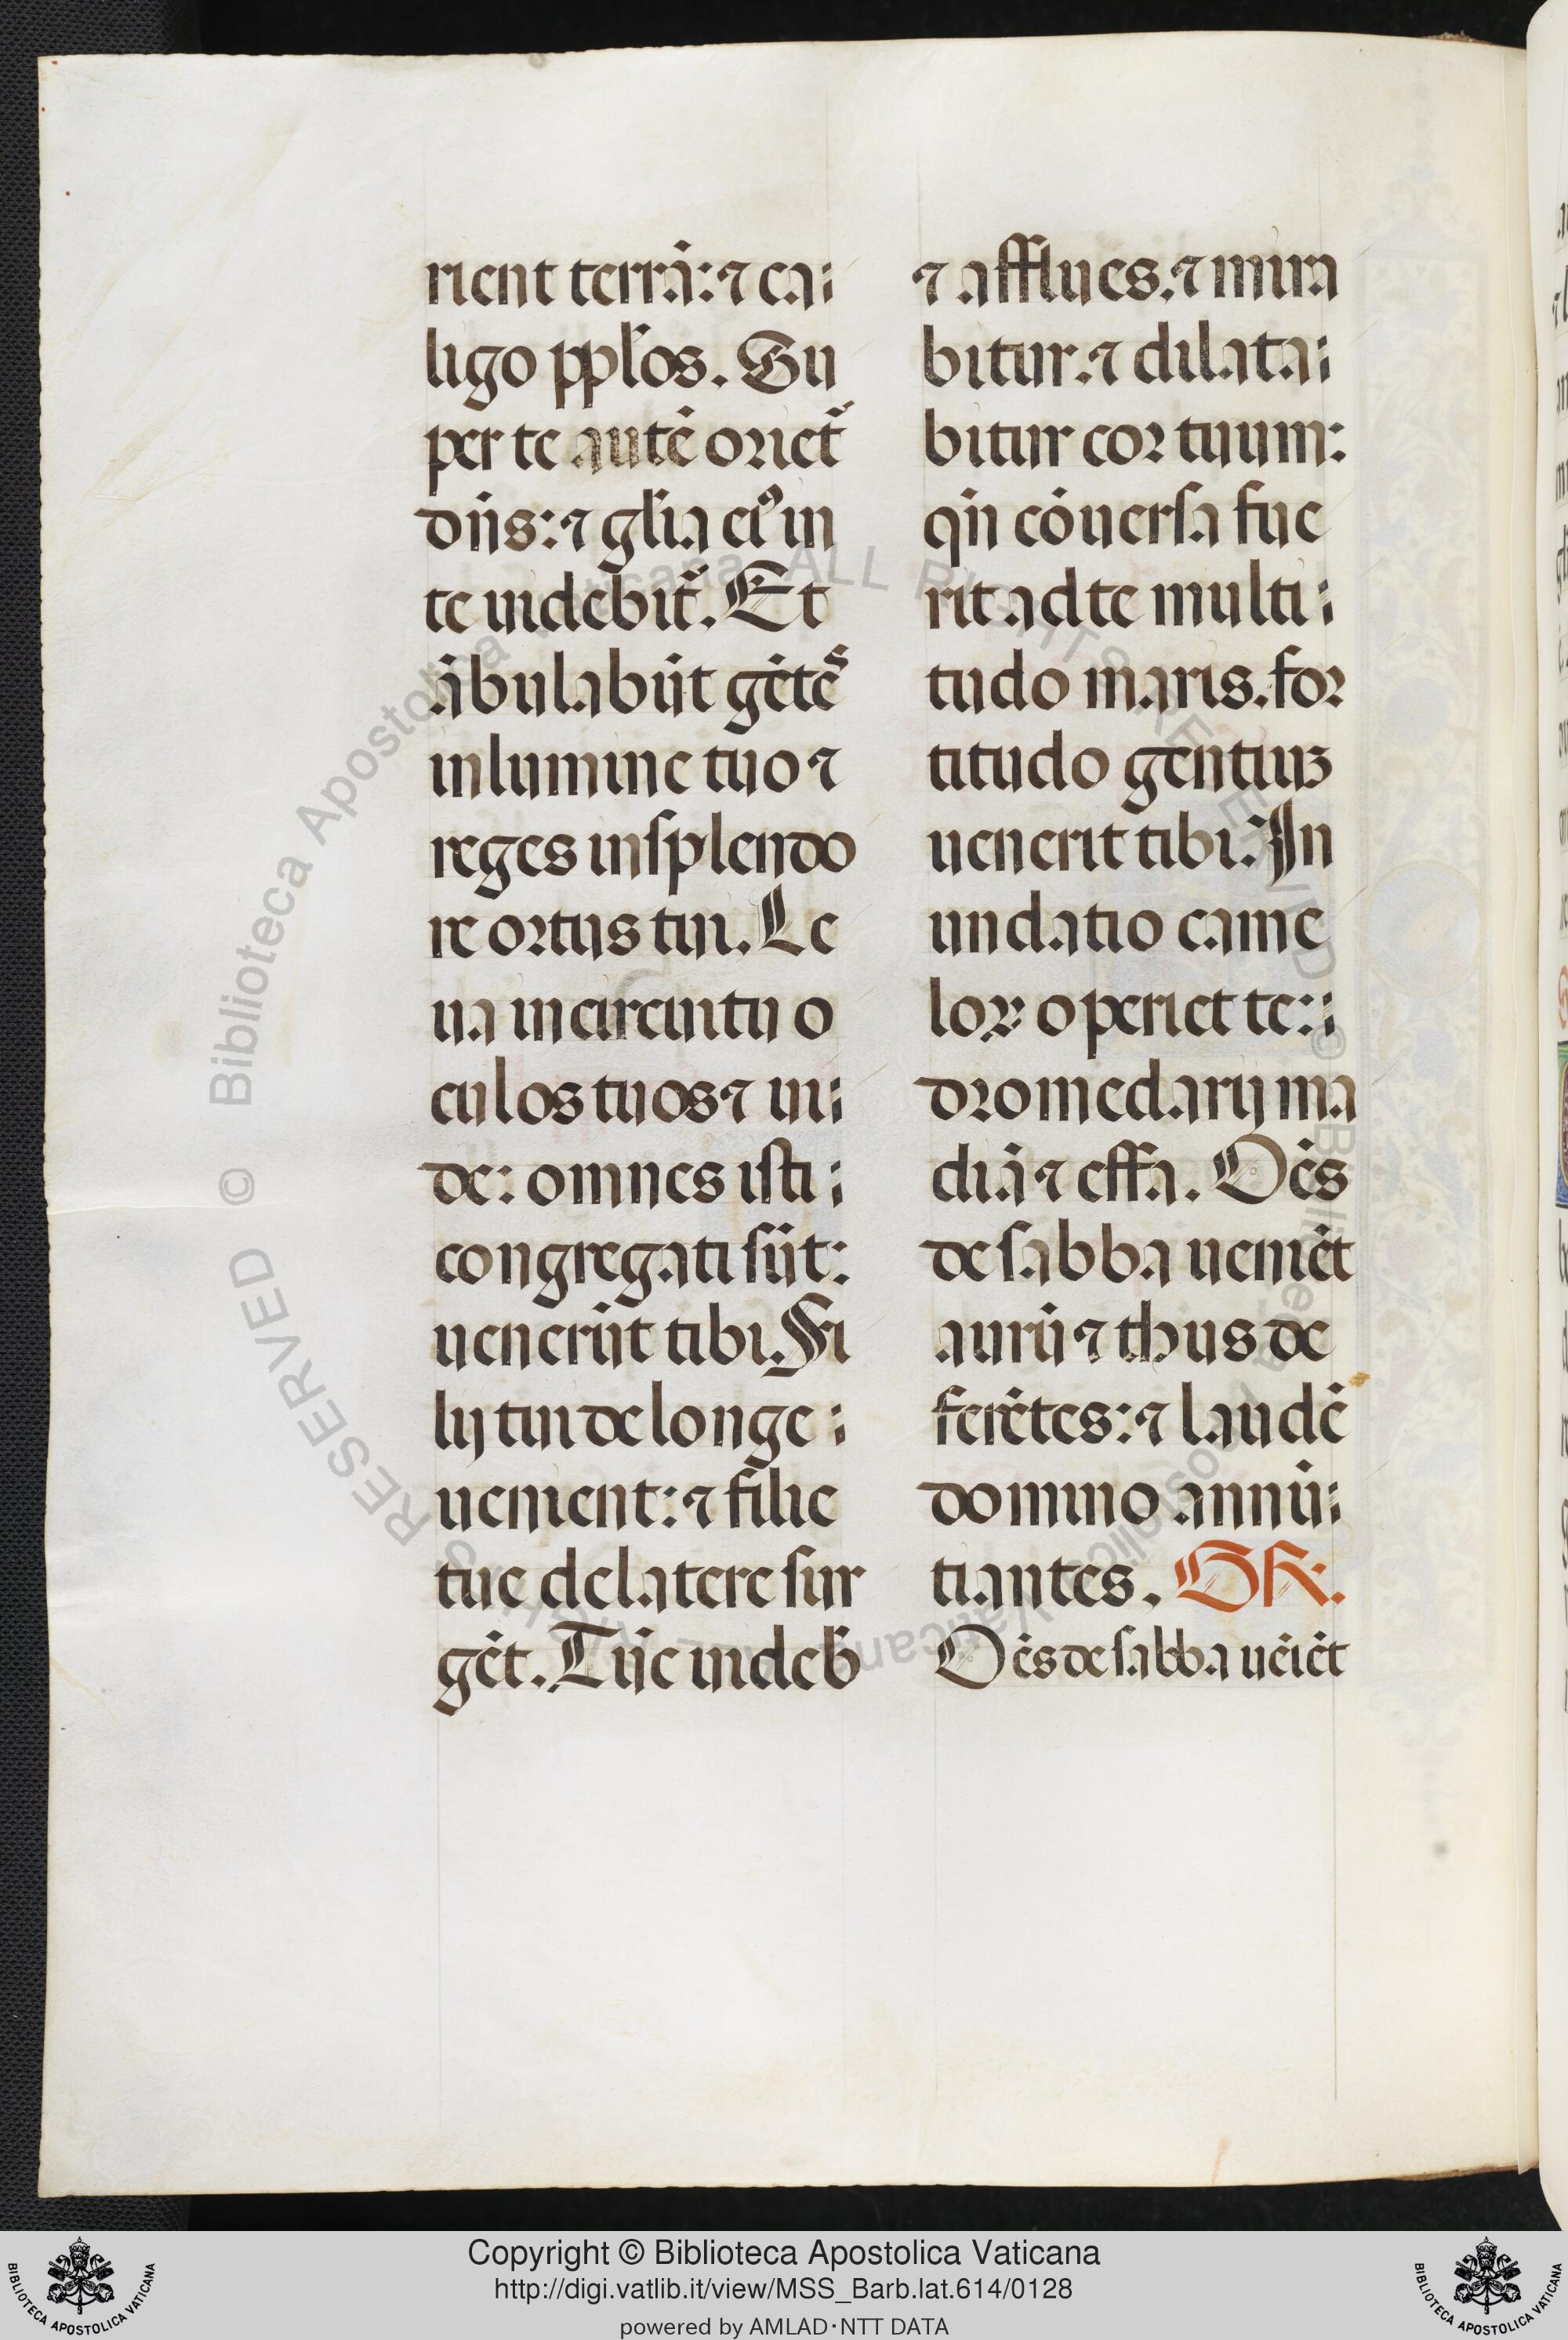 rient terrā: ⁊ ca
ligo pp̄los. Su
per te autē oriet᷑
dn̄s: ⁊ gl̄ia eiꝰ in
te uidebit᷑. Et
ābulabūt gētes
in lumine tuo ⁊
reges in splendo
re ortus tui. Le
ua in circuitu o
culos tuos ⁊ ui
de: omnes isti
congregati sūt:
uenerūt tibi. Fi
lij tui de longe
uenient: ⁊ filie
tue de latere sur
gēt. Tūc uideb̄
⁊ afflues. ⁊ mira
bitur. ⁊ dilata
bitur cor tuum:
qn̄ cōuersa fue
rit ad te multi
tudo maris. for
titudo gentiuꝫ
uenerit tibi. In
undatio came
loꝝ operiet te:
dromedarij ma
diā ⁊ effa. Oēs
de sabba ueniēt
aurū ⁊ thus de
ferētes: ⁊ laudē
domino annū
tiantes. GR.
Oēs de sabba uēiēt
Copyright © Biblioteca Apostolica Vaticana
http://digi.vatlib.it/view/MSS_Barb.lat.614/0128
powered by AMLAD·NTT DATA
BIBLIOTECA APOSTOLICA VATICANA
BIBLIOTECA APOSTOLICA VATICANA